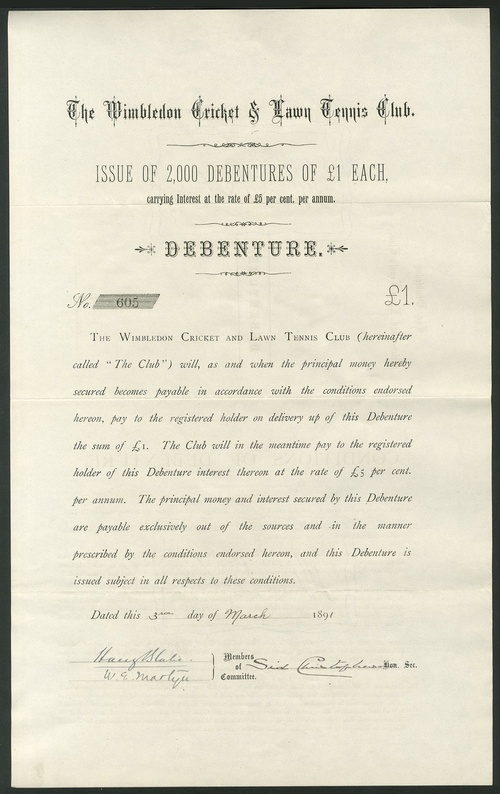 The Wimbledon Cricket & Lawn Tennis Club.
ISSUE OF 2,000 DEBENTURES OF £1 EACH,
carrying Interest at the rate of £5 per cent. per annum.
DEBENTURE.
No. 605 £1.
THE WIMBLEDON CRICKET AND LAWN TENNIS CLUB (hereinafter
called "The Club") will, as and when the principal money hereby
secured becomes payable in accordance with the conditions endorsed
hereon, pay to the registered holder on delivery up of this Debenture
the sum of £1. The Club will in the meantime pay to the registered
holder of this Debenture interest thereon at the rate of £5 per cent.
per annum. The principal money and interest secured by this Debenture
are payable exclusively out of the sources and in the manner
prescribed by the conditions endorsed hereon, and this Debenture is
issued subject in all respects to these conditions.
Dated this 3rd day of March 1891
Members
of
Committee.
W. E. Martyn
Hon. Sec.